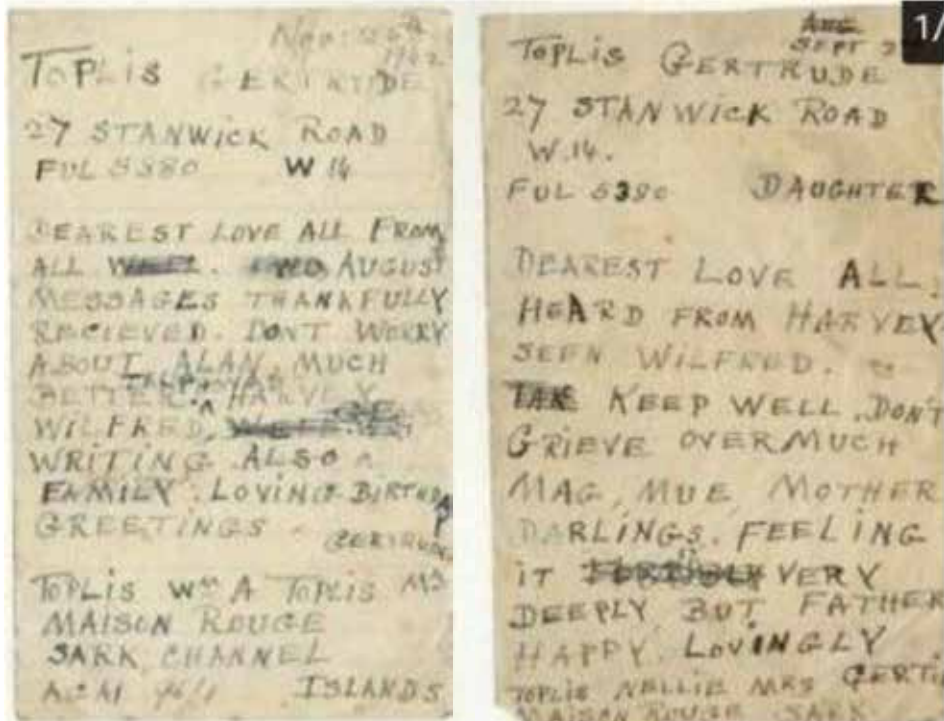 Nov: 25th
1942
TOPLIS GERTRUDE
27 STANWICK ROAD
FUL 5380 W 14
DEAREST LOVE ALL FROM
ALL AUGUST
MESSAGES THANKFULLY
RECIEVED. DONT WORRY
ABOUT ALAN, MUCH
BETTER. HARVEY
WILFRED,
WRITING. ALSO
FAMILY. LOVING BIRTHDAY
GREETINGS
GERTRUDE
TOPLIS Wm A TOPLIS MS
MAISON ROUGE
SARK, CHANNEL
ISLANDS
1/
SEPT
TOPLIS GERTRUDE
27 STANWICK ROAD
W.14.
FUL 5380 DAUGHTER
DEAREST LOVE ALL.
HEARD FROM HARVEY
SEEN WILFRED.
KEEP WELL. DON'T
GRIEVE OVERMUCH
MAG, MUE, MOTHER
DARLINGS. FEELING
IT VERY
DEEPLY BUT FATHER
HAPPY. LOVINGLY
TOPLIS NELLIE MRS GERTIE
MAISON ROUGE SARK